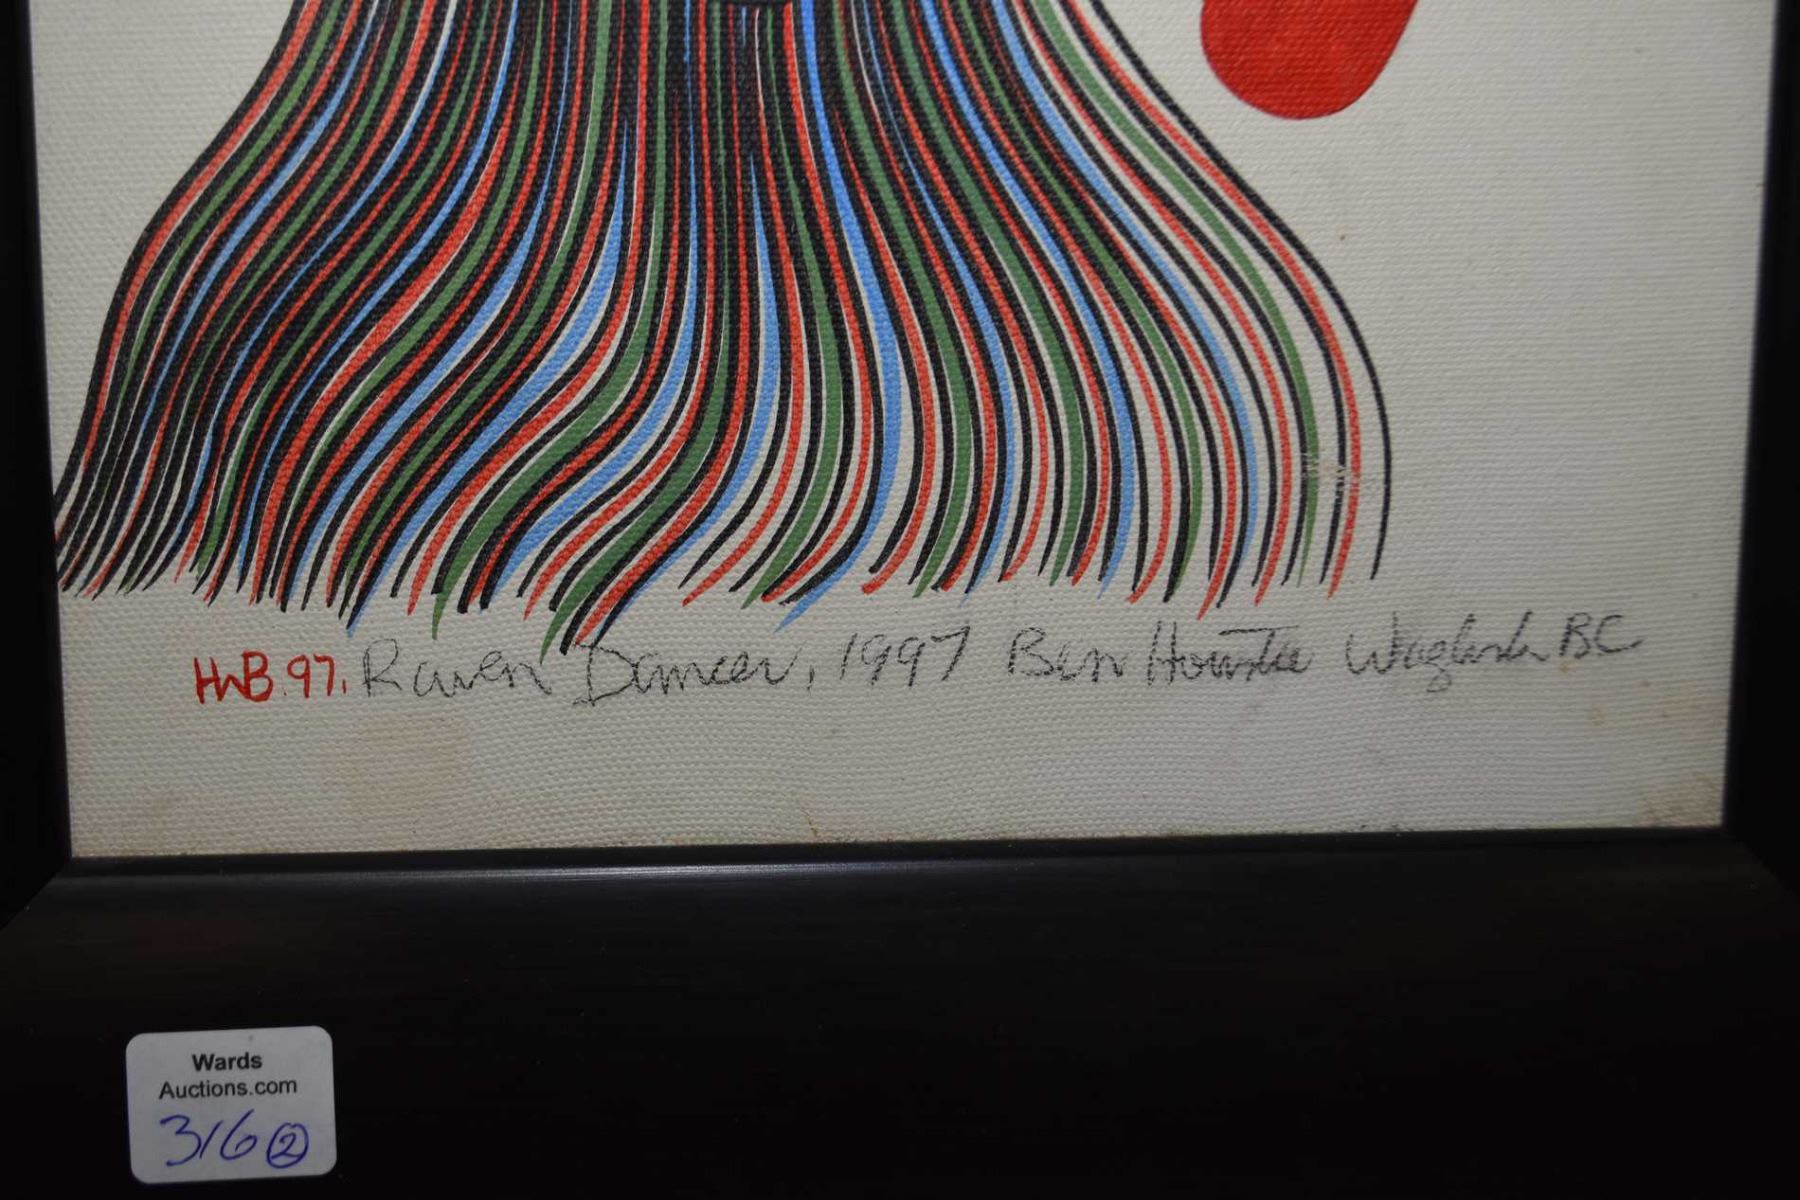 HWB.97. Raven Dancer, 1997 Ben Houstie Waglisla BC
Wards
Auctions.com
316 2